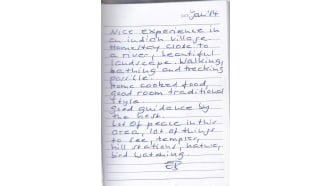 Jan '14
Nice experience in
an indian village.
Homestay close to
a river, beautiful
landscape. Walking,
bathing and trecking
possible.
Home cooked food,
good room traditional
style.
Good guidance by
the host.
Lot of peace in this
area, lot of things
to see, temples,
hill stations, nature,
bird watching.